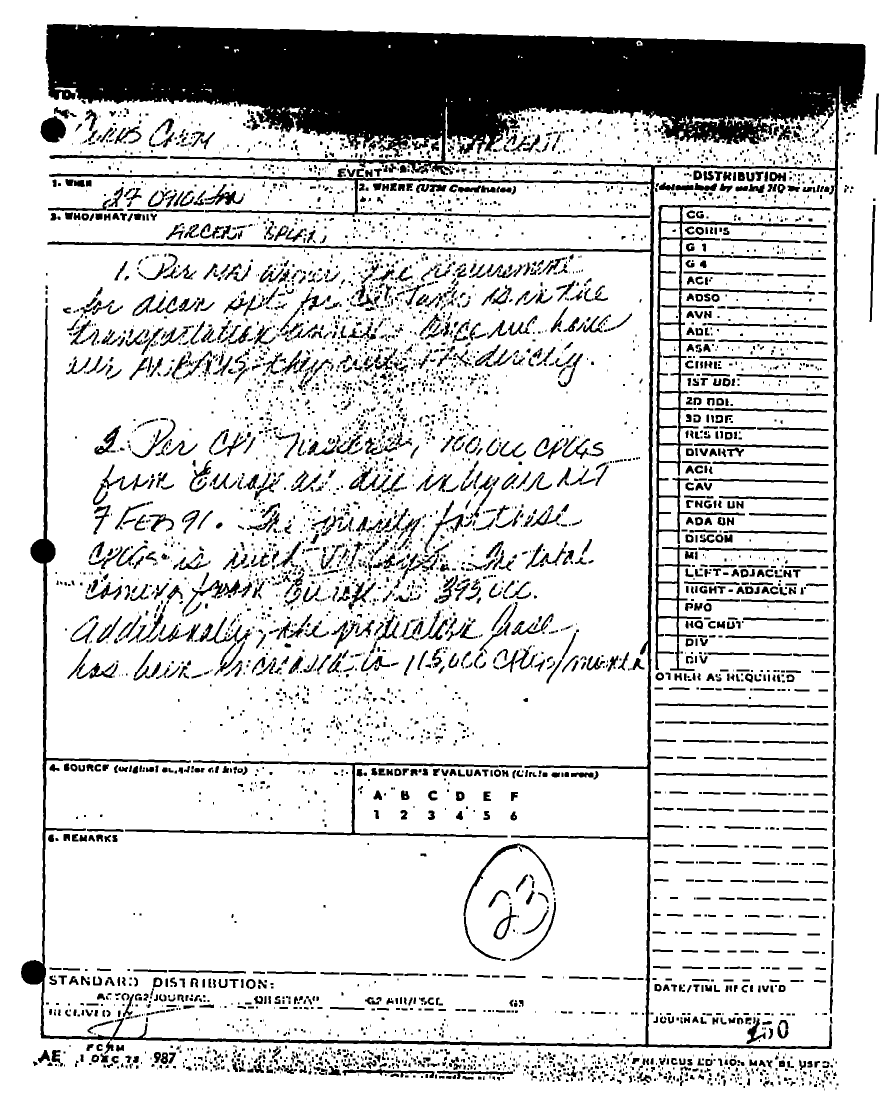 TO:
Corps Chem ARCENT
EVENT
1. WHEN
2. WHERE (UTM Coordinates)
27 JAN
3. WHO/WHAT/WHY
ARCENT
1. Per the requirement
for decon for is in the
transportation annex. Once we have
our they directly.
2. Per CPT , 100,000 CPOGs
from Europe are due in by air NLT
7 FEB 91. The priority for these
CPOGs is VII Corps. The total
coming from Europe is 395,000.
Additionally, the production base
has been increased to 115,000 CPOGs/month
4. SOURCE (original supplier of info)
5. SENDER'S EVALUATION (Circle answers)
A B C D E F
1 2 3 4 5 6
6. REMARKS
23
STANDARD DISTRIBUTION:
G2 JOURNAL G3
RECEIVED BY
AE FORM 1 DEC 78 987
PREVIOUS EDITION MAY BE USED.
DISTRIBUTION
(determined by using HQ or units)
CG
CORPS
G 1
G 4
ACF
ADSO
AVN
ADE
ASA
CHRE
1ST BDE
2D BDE
3D BDE
RES BDE
DIVARTY
ACR
CAV
ENGR BN
ADA BN
DISCOM
MI
LEFT-ADJACENT
RIGHT-ADJACENT
PMO
HQ CMDT
DIV
DIV
OTHER AS REQUIRED
DATE/TIME RECEIVED
JOURNAL NUMBER